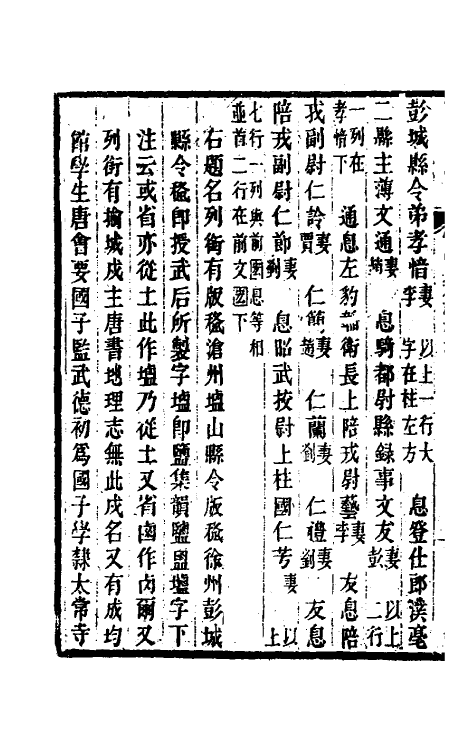 彭城縣令弟孝愔妻李 以上一行大字在柱左方 息登仕郎譔毫
二縣主薄文通妻 息騎都尉縣録事文友妻彭 以上二行
一列在孝愔下 通息左豹韜衛長上陪戎尉藝妻李 友息陪
戎副尉仁詅妻賈 仁簡妻趙 仁蘭妻劉 仁禮妻劉 友息
陪戎副尉仁節妻劉 息昭武挍尉上柱國仁芳妻 以上
七行一列與前圀息等相並首二行在前文圀下
右題名列銜有版稐滄州壚山縣令版稐徐州彭城
縣令稐卽授武后所製字壚卽鹽集韻鹽盬壚字下
注云或省亦從土此作壚乃從土又省鹵作卤爾又
列銜有揄城戍主唐書地理志無此戍名又有成均
館學生唐會要國子監武德初爲國子學隸太常寺